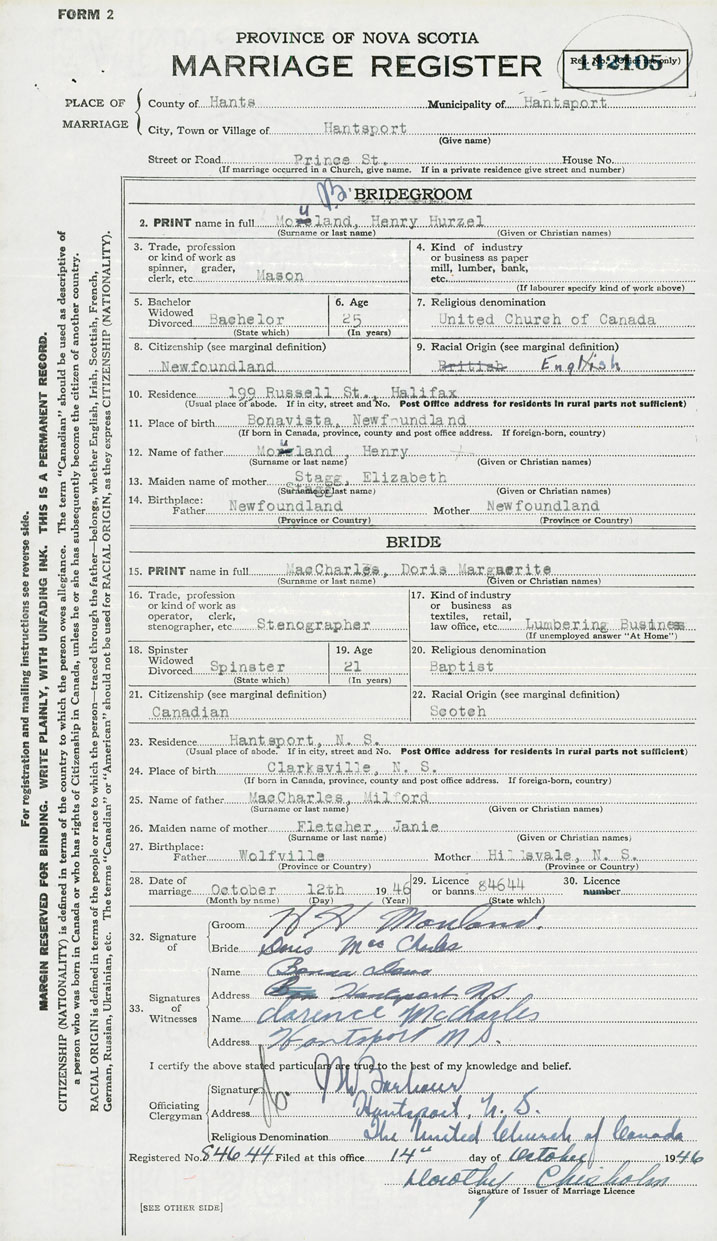 FORM 2
PROVINCE OF NOVA SCOTIA
MARRIAGE REGISTER
142105
PLACE OF MARRIAGE
County of Hants Municipality of Hantsport
City, Town or Village of Hantsport
(Give name)
Street or Road Prince St. House No.
(If marriage occurred in a Church, give name. If in a private residence give street and number)
BRIDEGROOM
2. PRINT name in full Mouland, Henry Hurzel
(Surname or last name) (Given or Christian names)
3. Trade, profession or kind of work as spinner, grader, clerk, etc. Mason
4. Kind of industry or business as paper mill, lumber, bank, etc.
(If labourer specify kind of work above)
5. Bachelor Widowed Divorced Bachelor
(State which)
6. Age 25
(In years)
7. Religious denomination
United Church of Canada
8. Citizenship (see marginal definition)
Newfoundland
9. Racial Origin (see marginal definition)
British English
10. Residence 199 Russell St., Halifax
(Usual place of abode. If in city, street and No. Post Office address for residents in rural parts not sufficient)
11. Place of birth Bonavista, Newfoundland
(If born in Canada, province, county and post office address. If foreign-born, country)
12. Name of father Mouland, Henry
(Surname or last name) (Given or Christian names)
13. Maiden name of mother Stagg, Elizabeth
(Surname or last name) (Given or Christian names)
14. Birthplace: Father Newfoundland Mother Newfoundland
(Province or Country) (Province or Country)
BRIDE
15. PRINT name in full MacCharles, Doris Marguerite
(Surname or last name) (Given or Christian names)
16. Trade, profession or kind of work as operator, clerk, stenographer, etc. Stenographer
17. Kind of industry or business as textiles, retail, law office, etc. Lumbering Business
(If unemployed answer "At Home")
18. Spinster Widowed Divorced Spinster
(State which)
19. Age 21
(In years)
20. Religious denomination
Baptist
21. Citizenship (see marginal definition)
Canadian
22. Racial Origin (see marginal definition)
Scotch
23. Residence Hantsport, N. S.
(Usual place of abode. If in city, street and No. Post Office address for residents in rural parts not sufficient)
24. Place of birth Clarksville, N. S.
(If born in Canada, province, county and post office address. If foreign-born, country)
25. Name of father MacCharles, Milford
(Surname or last name) (Given or Christian names)
26. Maiden name of mother Fletcher, Janie
(Surname or last name) (Given or Christian names)
27. Birthplace: Father Wolfville Mother Hillsvale, N. S.
(Province or Country) (Province or Country)
28. Date of marriage October 12th 1946
(Month by name) (Day) (Year)
29. Licence or banns 84644
(State which)
30. Licence number
32. Signature of
Groom H H Mouland.
Bride Doris MacCharles
33. Signatures of Witnesses
Name
Address Hantsport N.S.
Name Clarence McCharles
Address Hantsport N.S.
I certify the above stated particulars are true to the best of my knowledge and belief.
Officiating Clergyman
Signature Barbour
Address Hantsport, N. S.
Religious Denomination The United Church of Canada
Registered No. 84644 Filed at this office 14" day of October 1946
Dorothy Chisholm
Signature of Issuer of Marriage Licence
[SEE OTHER SIDE]
For registration and mailing instructions see reverse side.
MARGIN RESERVED FOR BINDING. WRITE PLAINLY, WITH UNFADING INK. THIS IS A PERMANENT RECORD.
CITIZENSHIP (NATIONALITY) is defined in terms of the country to which the person owes allegiance. The term "Canadian" should be used as descriptive of
a person who was born in Canada or who has rights of Citizenship in Canada, unless he or she has subsequently become the citizen of another country.
RACIAL ORIGIN is defined in terms of the people or race to which the person—traced through the father—belongs, whether English, Irish, Scottish, French,
German, Russian, Ukrainian, etc. The terms "Canadian" or "American" should not be used for RACIAL ORIGIN, as they express CITIZENSHIP (NATIONALITY).